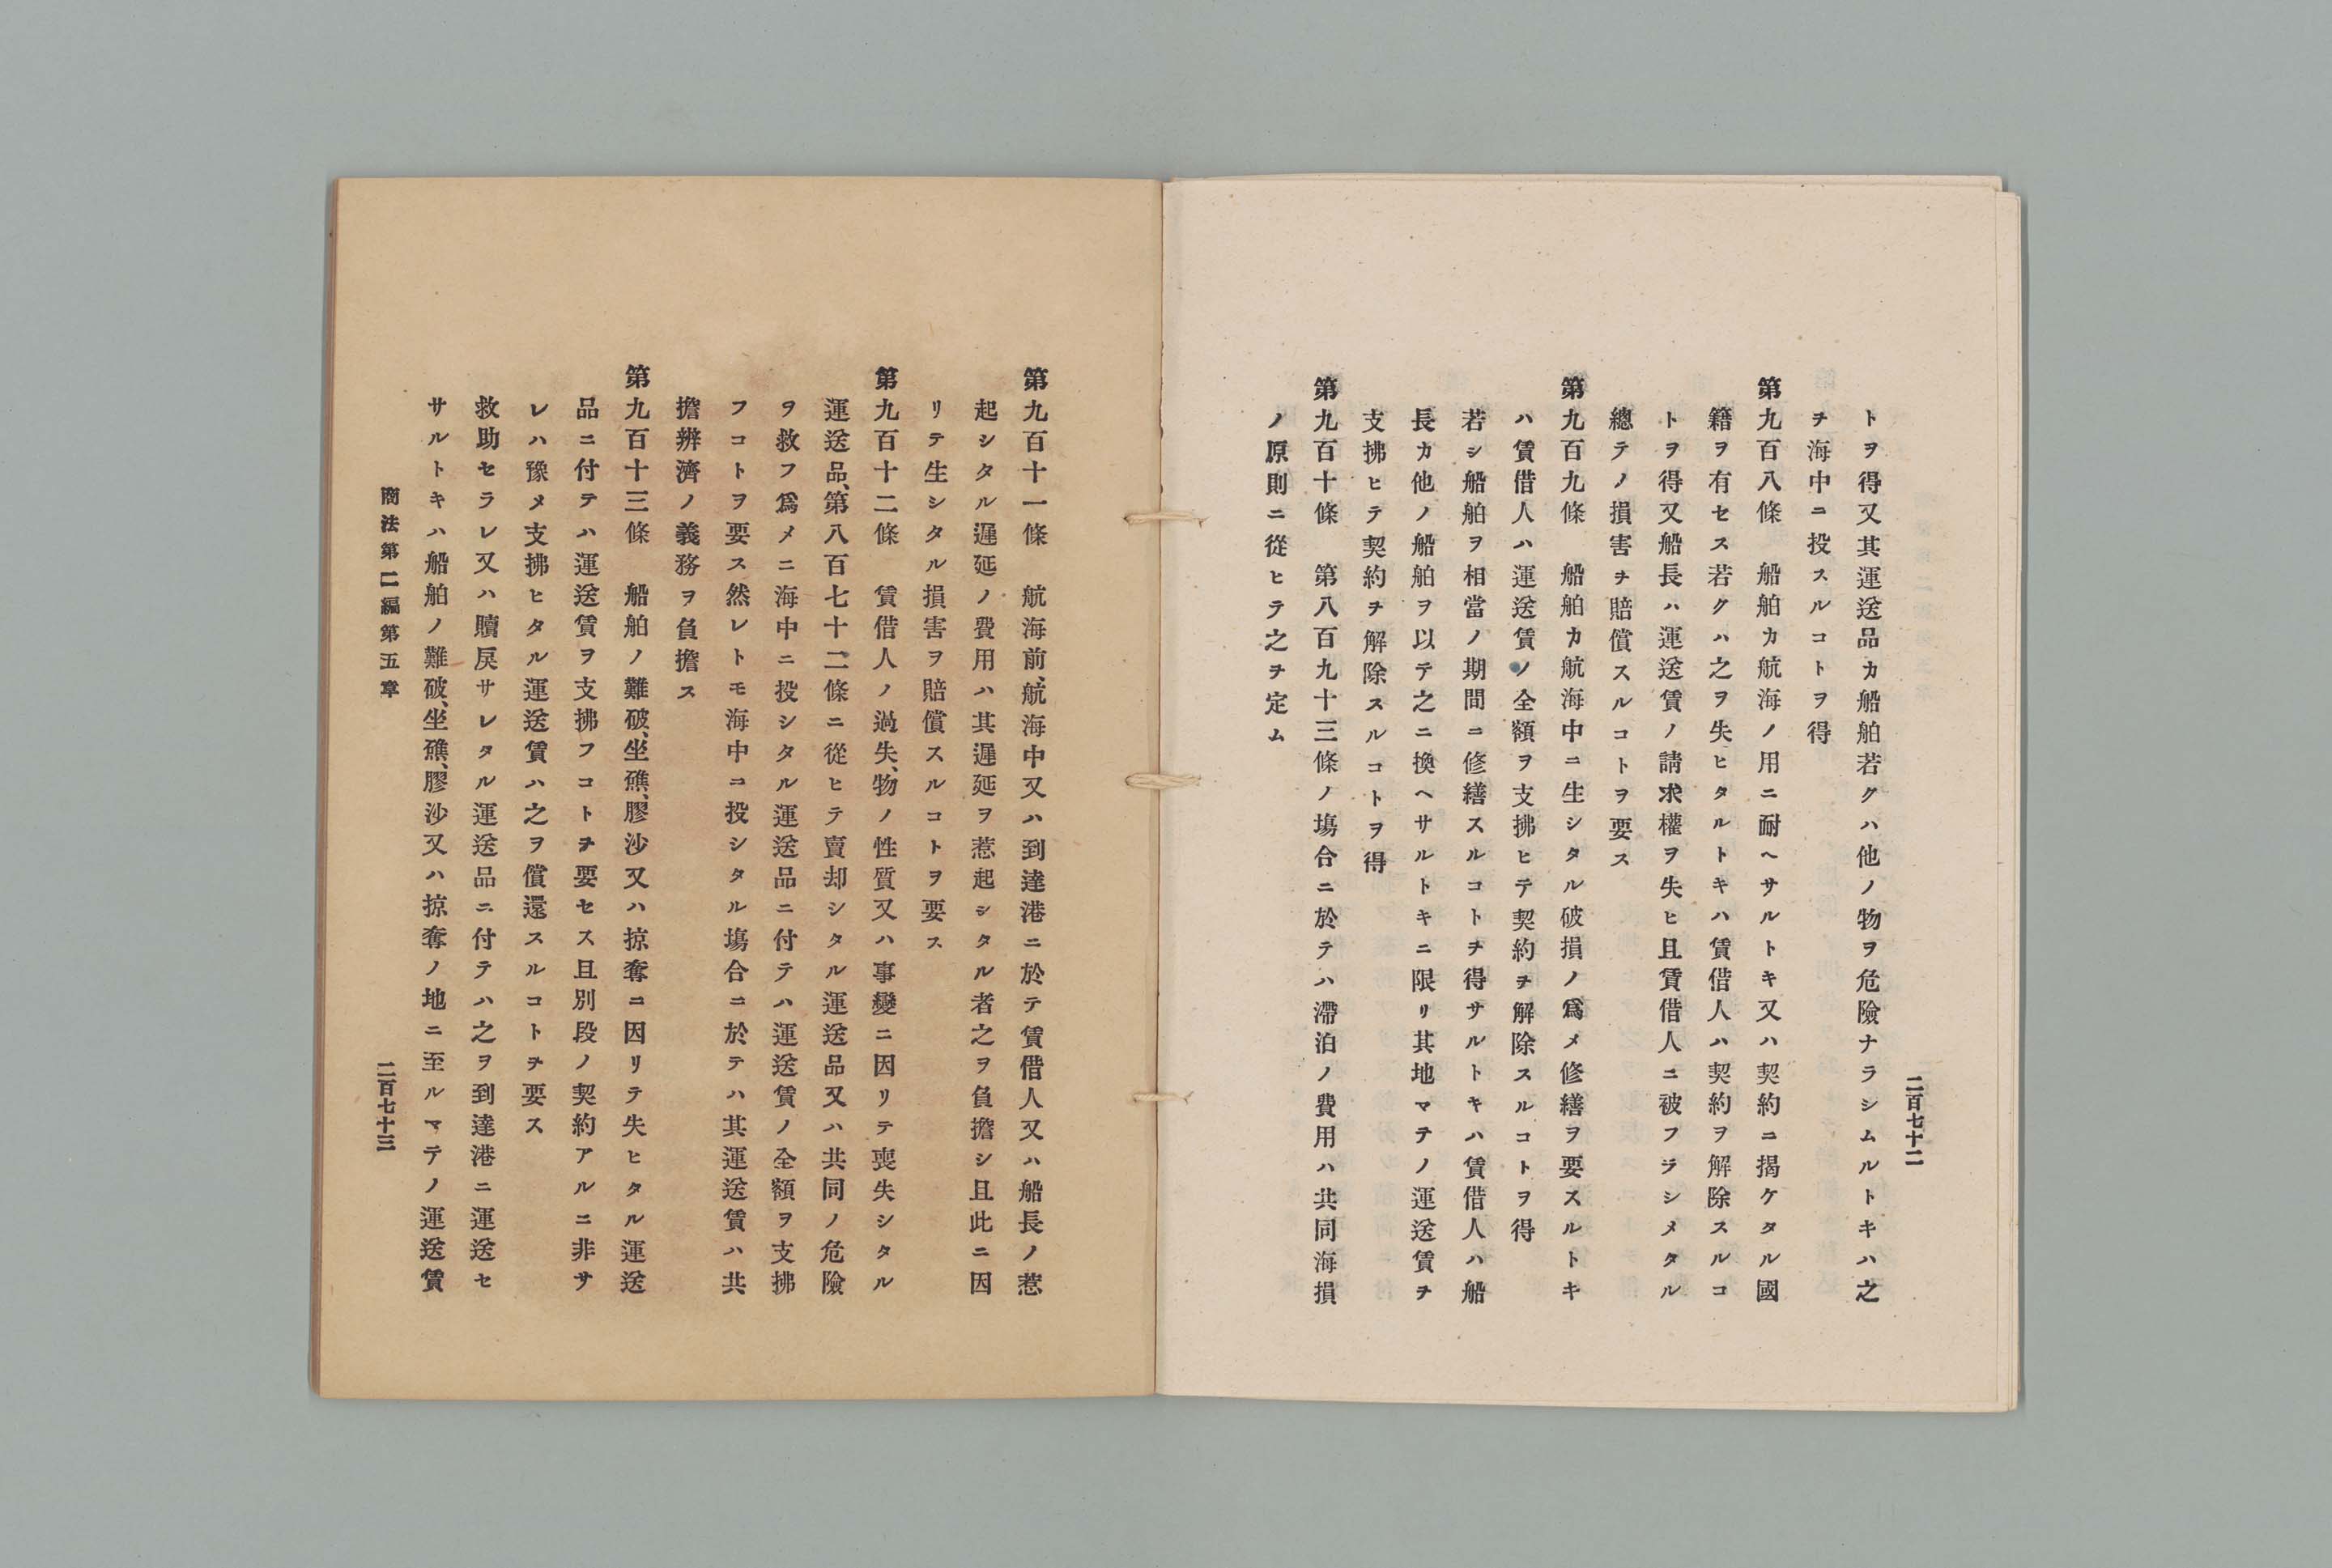 二百七十二
トヲ得又其運送品カ船舶若クハ他ノ物ヲ危險ナラシムルトキハ之
チ海中ニ投スルコトヲ得
第九百八條　船舶カ航海ノ用ニ耐ヘサルトキ又ハ契約ニ揭ケタル國
籍ヲ有セス若クハ之ヲ失ヒタルトキハ賃借人ハ契約ヲ解除スルコ
トヲ得又船長ハ運送賃ノ請求權ヲ失ヒ且賃借人ニ被フラシメタル
總テノ損害チ賠償スルコトヲ要ス
第九百九條　船舶カ航海中ニ生シタル破損ノ爲メ修繕ヲ要スルトキ
ハ賃借人ハ運送賃ノ全額ヲ支拂ヒテ契約チ解除スルコトヲ得
若シ船舶ヲ相當ノ期間ニ修繕スルコトチ得サルトキハ賃借人ハ船
長カ他ノ船舶ヲ以テ之ニ換ヘサルトキニ限リ其地マテノ運送賃チ
支拂ヒテ契約チ解除スルコトヲ得
第九百十條　第八百九十三條ノ塲合ニ於テハ滯泊ノ費用ハ共同海損
ノ原則ニ從ヒテ之ヲ定ム
第九百十一條　航海前、航海中又ハ到達港ニ於テ賃借人又ハ船長ノ惹
起シタル遲延ノ費用ハ其遲延ヲ惹起シタル者之ヲ負擔シ且此ニ因
リテ生シタル損害ヲ賠償スルコトヲ要ス
第九百十二條　賃借人ノ過失、物ノ性質又ハ事變ニ因リテ喪失シタル
運送品、第八百七十二條ニ從ヒテ賣却シタル運送品又ハ共同ノ危險
ヲ救フ爲メニ海中ニ投シタル運送品ニ付テハ運送賃ノ全額ヲ支拂
フコトヲ要ス然レトモ海中ニ投シタル塲合ニ於テハ其運送賃ハ共
擔辨濟ノ義務ヲ負擔ス
第九百十三條　船舶ノ難破、坐礁、膠沙又ハ掠奪ニ因リテ失ヒタル運送
品ニ付テハ運送賃ヲ支拂フコトチ要セス且別段ノ契約アルニ非サ
レハ豫メ支拂ヒタル運送賃ハ之ヲ償還スルコトチ要ス
救助セラレ又ハ贖戾サレタル運送品ニ付テハ之ヲ到達港ニ運送セ
サルトキハ船舶ノ難破、坐礁、膠沙又ハ掠奪ノ地ニ至ルマテノ運送賃
商法第二編第五章
二百七十三